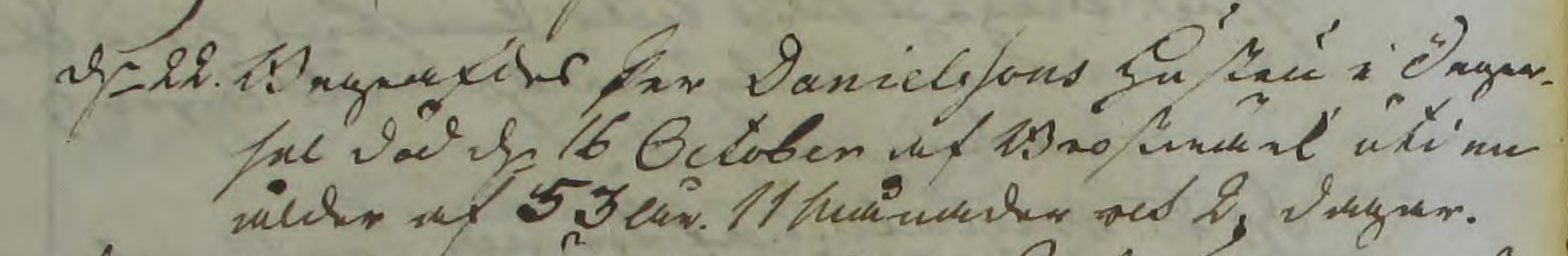 dn 22. Begrafdes Per Danielssons Hustru i Dager-
sal död dn 16 October af Bröstwärk uti en
ålder af 53 år. 11 månader och 2 dagar.